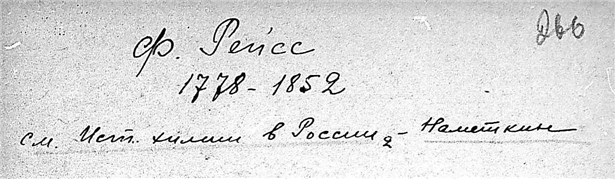 266
Ф. Рейсс
1778-1852
см. Ист. химии в России2 - Наметкин